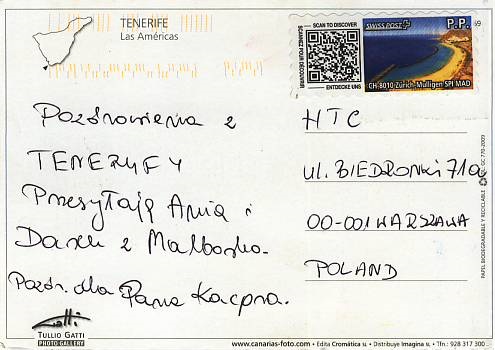 TENERIFE
Las Américas
SCAN TO DISCOVER
SCANNEZ POUR DÉCOUVRIR
ENTDECKE UNS
SWISS POST
P.P.
CH-8010 Zürich-Mülligen SPI MAD
Pozdrowienia z
TENERYFY
Przesyłają Ania i
Darek z Malborka.
Pozdr. dla Pana Kacpra.
HTC
ul. BIEDRONKI 71a
00-001 WARSZAWA
POLAND
Gatti
TULLIO GATTI
PHOTO GALLERY
www.canarias-foto.com • Edita Cromática sl. • Distribuye Imagina sl. • Tfn.: 928 317 300
PAPEL BIODEGRADABLE Y RECICLABLE
GC 770-2009